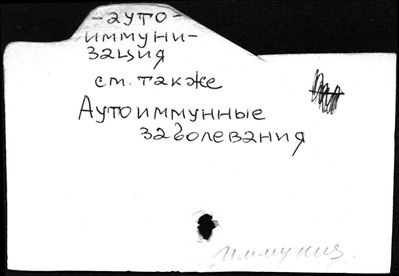 -ауто-
иммуни-
зация
см. также
Аутоиммунные
заболевания
иммуния.